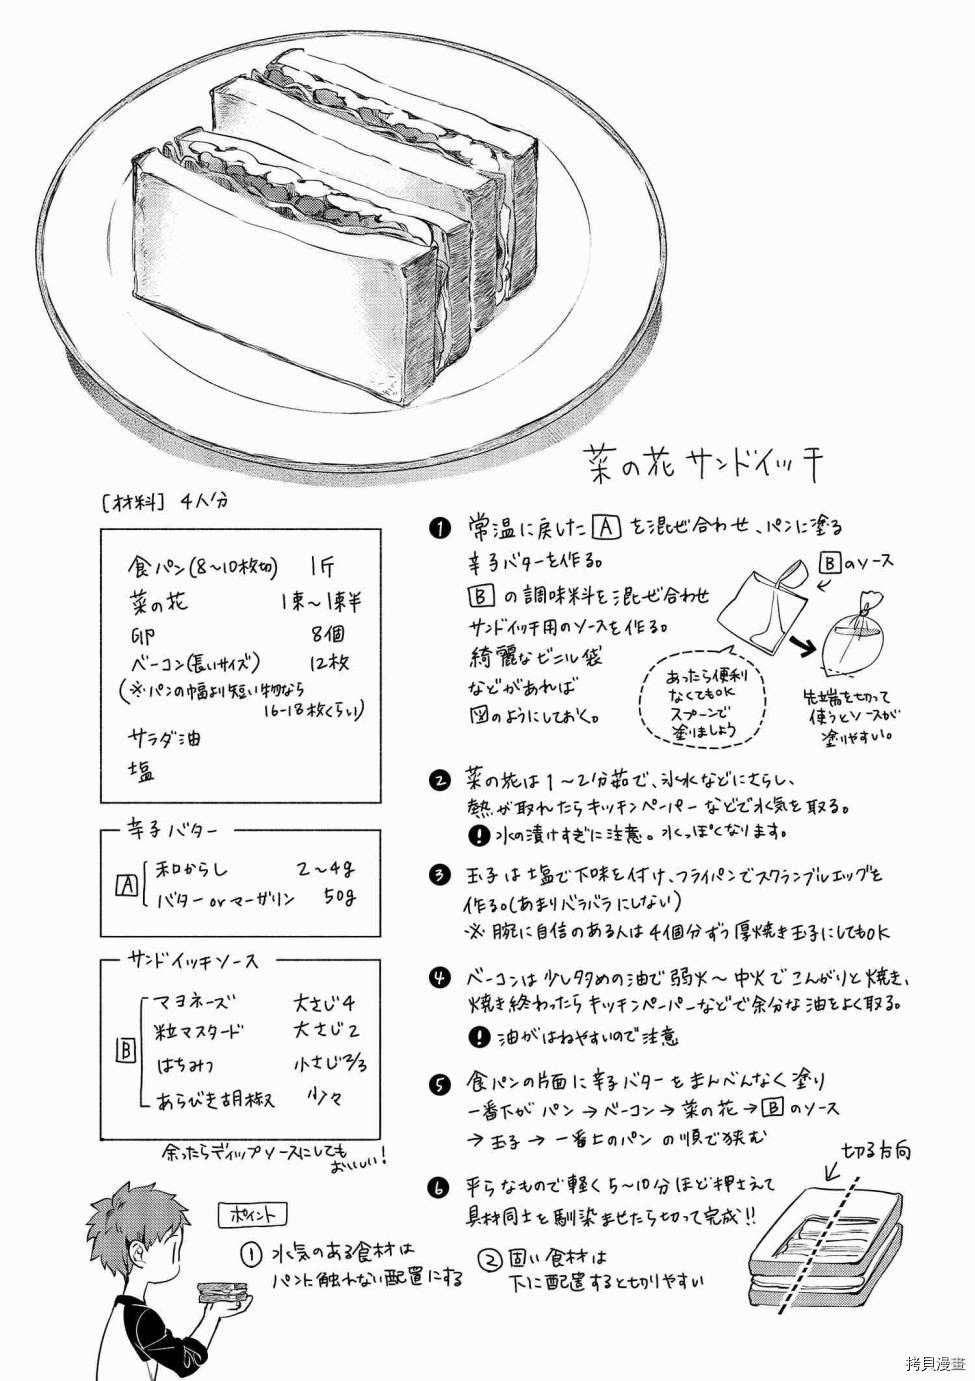 菜の花サンドイッチ
[材料] 4人分
食パン(8〜10枚切) 1斤
菜の花 1束〜1束半
卵 8個
ベーコン(長いサイズ) 12枚
(※パンの幅より短い物なら
16-18枚くらい)
サラダ油
塩
辛子バター
A
和からし 2〜4g
バター or マーガリン 50g
サンドイッチソース
B
マヨネーズ 大さじ4
粒マスタード 大さじ2
はちみつ 小さじ2/3
あらびき胡椒 少々
余ったらディップソースにしても
おいしい!
❶ 常温に戻した A を混ぜ合わせ、パンに塗る
辛子バターを作る。
B の調味料を混ぜ合わせ
サンドイッチ用のソースを作る。
綺麗なビニル袋
などがあれば
図のようにしておく。
Bのソース
あったら便利
なくてもOK
スプーンで
塗りましょう
先端を切って
使うとソースが
塗りやすい。
❷ 菜の花は1〜2分茹で、氷水などにさらし、
熱が取れたらキッチンペーパーなどで水気を取る。
! 水の漬けすぎに注意。水っぽくなります。
❸ 玉子は塩で下味を付け、フライパンでスクランブルエッグを
作る。(あまりバラバラにしない)
※腕に自信のある人は4個分ずつ厚焼き玉子にしてもOK
❹ ベーコンは少し多めの油で弱火〜中火でこんがりと焼き、
焼き終わったらキッチンペーパーなどで余分な油をよく取る。
! 油がはねやすいので注意
❺ 食パンの片面に辛子バターをまんべんなく塗り
一番下がパン→ベーコン→菜の花→Bのソース
→玉子→一番上のパンの順で挟む
❻ 平らなもので軽く5〜10分ほど押さえて
具材同士を馴染ませたら切って完成!!
切る方向
ポイント
① 水気のある食材は
パンに触れない配置にする
② 固い食材は
下に配置すると切りやすい
拷貝漫畫